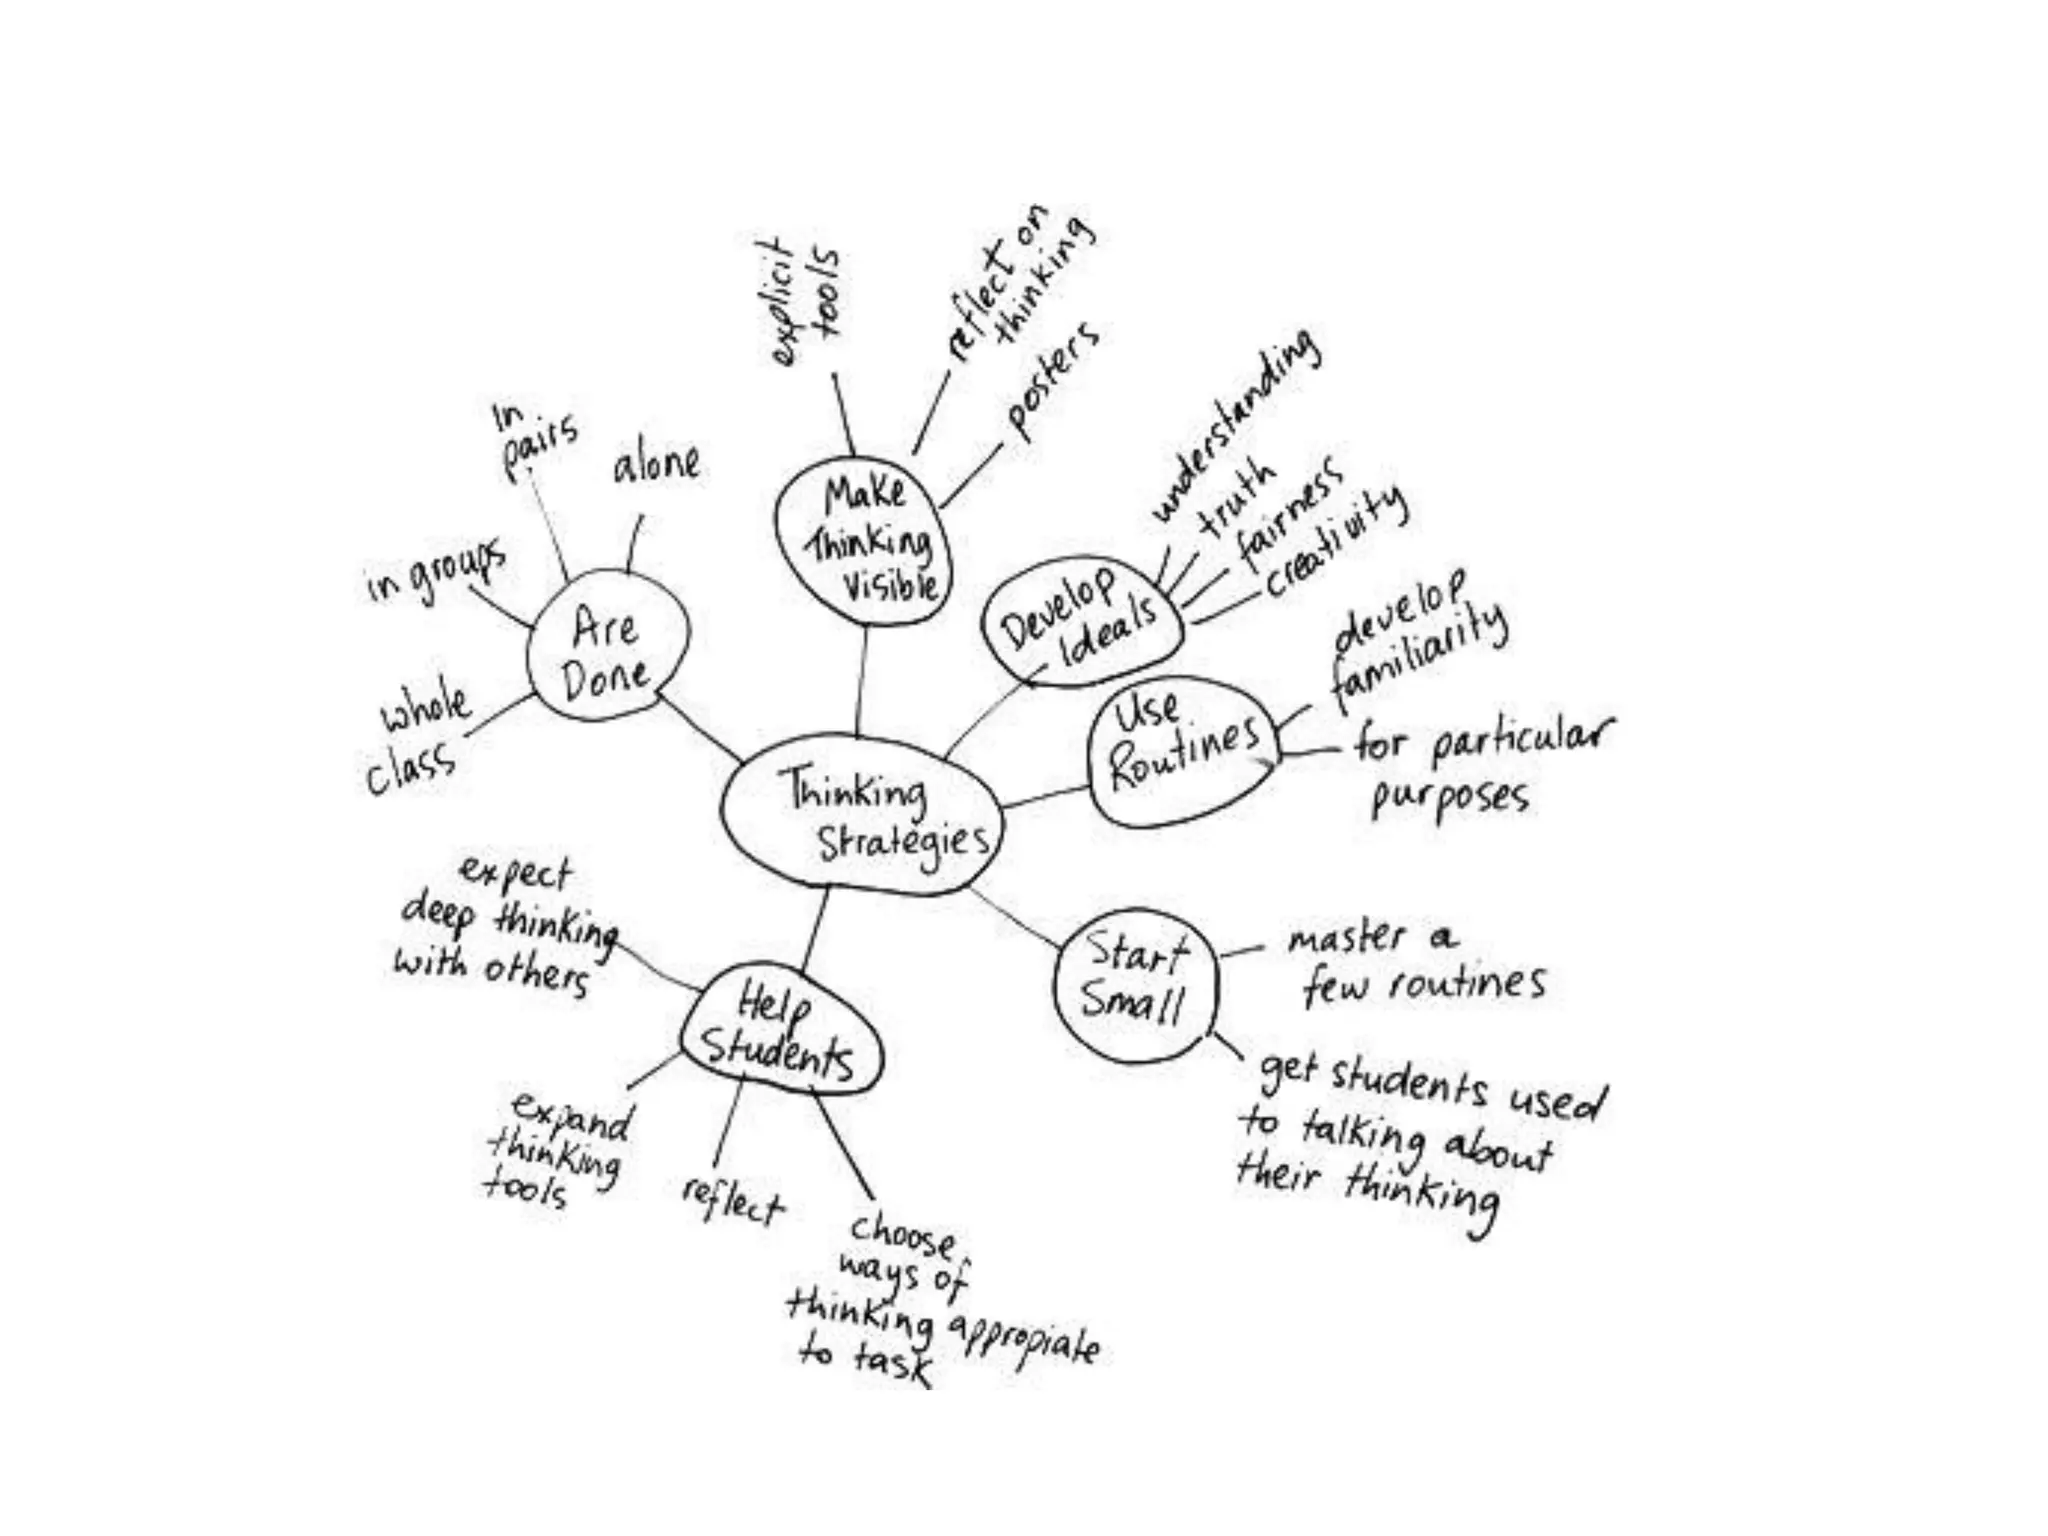 explicit
tools
reflect on
thinking
posters
Make
Thinking
Visible
in
pairs
alone
in groups
whole
class
Are
Done
understanding
truth
fairness
creativity
Develop
Ideals
develop
familiarity
for particular
purposes
Use
Routines
Thinking
Strategies
expect
deep thinking
with others
Help
Students
expand
thinking
tools
reflect
choose
ways of
thinking appropiate
to task
Start
Small
master a
few routines
get students used
to talking about
their thinking